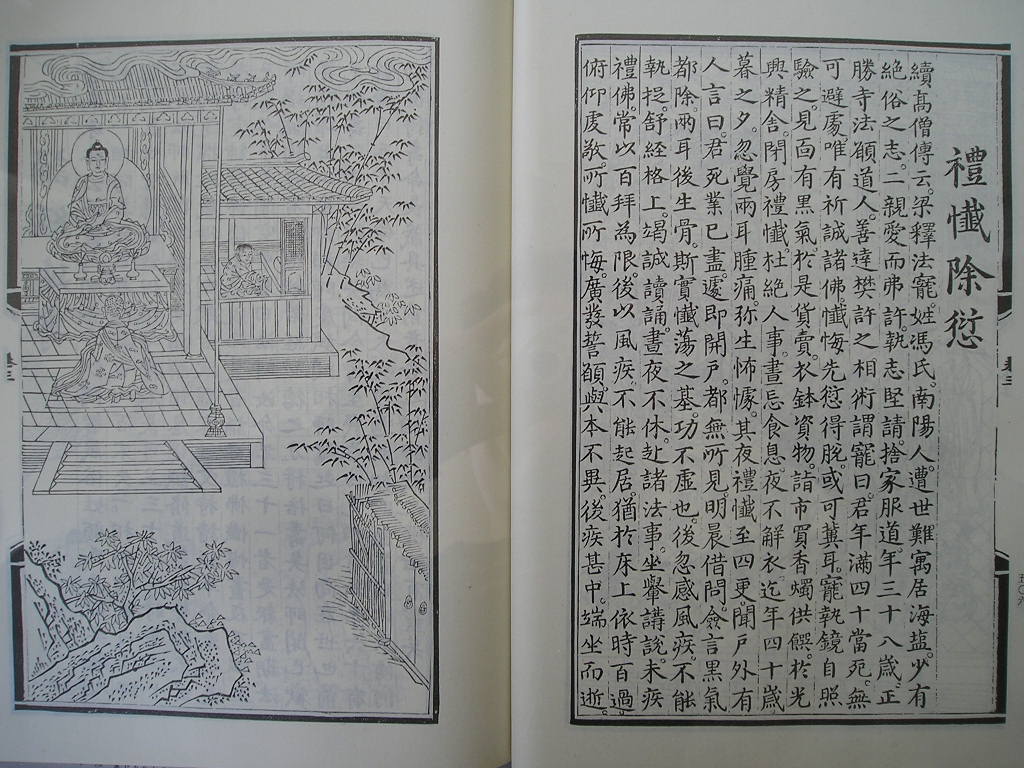 禮懺除愆
續高僧傳云。梁釋法寵。姓馮氏。南陽人。遭世難寓居海鹽。少有
絕俗之志。二親愛而弗許。執志堅請。捨家服道。年三十八歲。正
勝寺法願道人。善達樊許之相術。謂寵曰。君年滿四十當死。無
可避處。唯有祈誠諸佛。懺悔先愆得脫。或可冀耳。寵執鏡自照
驗之。見面有黑氣。於是貨賣衣鉢資物。詣市買香燭供饌。於光
興精舍。閉房禮懺。杜絕人事。晝忌食息。夜不解衣。迄年四十歲
暮之夕。忽覺兩耳腫痛。弥生怖懅。其夜禮懺至四更。聞戶外有
人言曰。君死業已盡。遽即開戶。都無所見。明晨借問。僉言黑氣
都除。兩耳後生骨。斯實懺蕩之基。功不虛也。後忽感風疾。不能
執捉。舒經格上。竭誠讀誦。晝夜不休。赴諸法事。坐轝講說。未疾
禮佛。常以百拜為限。後以風疾。不能起居。猶於床上依時百過。
俯仰虔敬。所懺所悔。廣發誓願。與本不異。後疾甚中。端坐而逝。
卷三
五〇六